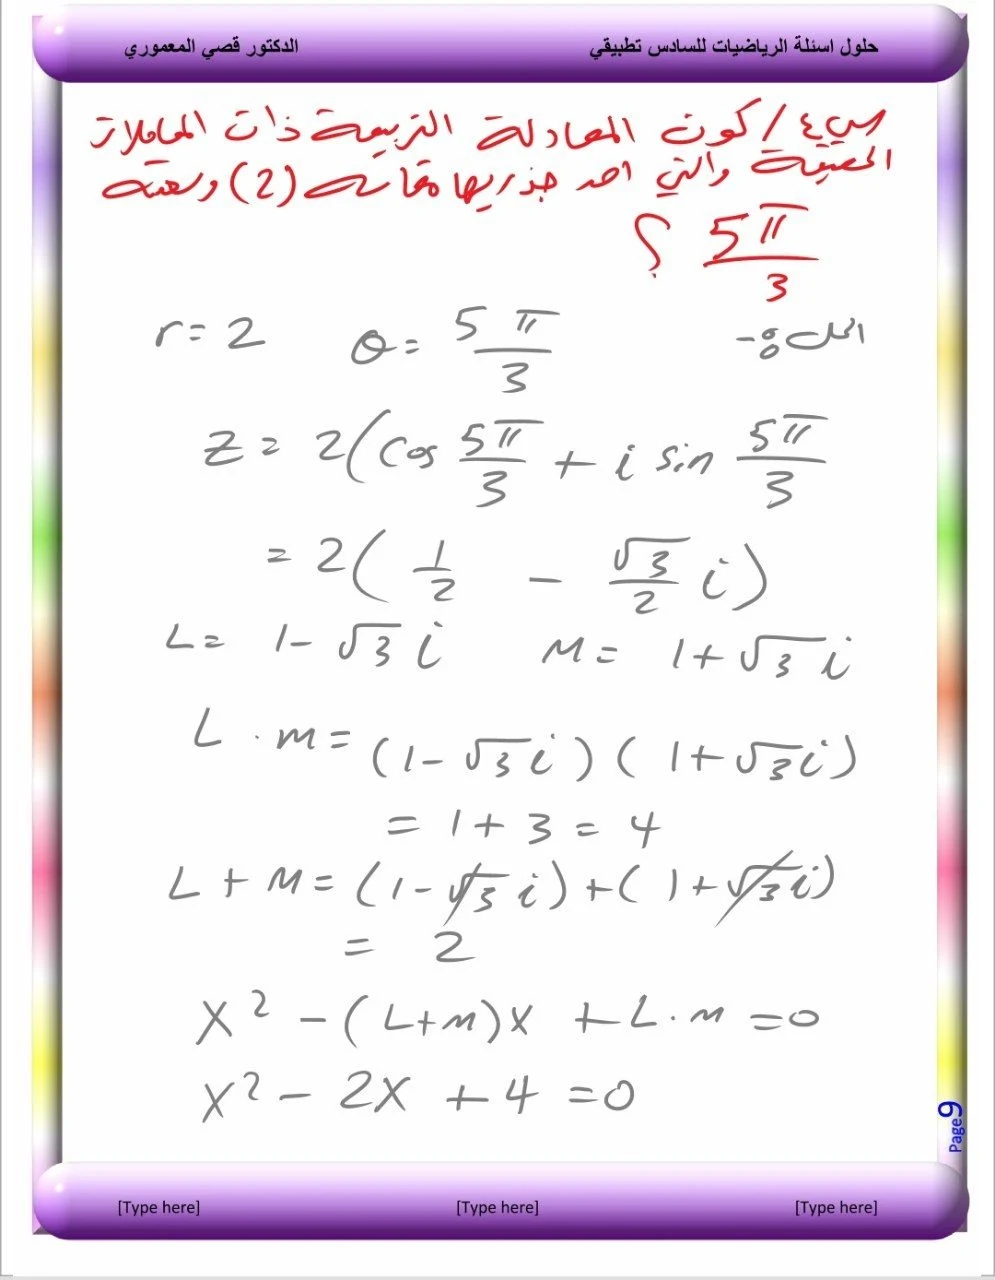 حلول اسئلة الرياضيات للسادس تطبيقي الدكتور قصي المعموري
س٤/ كون المعادلة التربيعية ذات المعاملات
الحقيقية والتي احد جذريها مقياسه (2) وسعته
5π/3 ؟
الحل:-
r = 2 θ = 5π/3
Z = 2(cos 5π/3 + i sin 5π/3
= 2(1/2 - √3/2 i)
L = 1 - √3 i M = 1 + √3 i
L . m = (1 - √3 i) (1 + √3 i)
= 1 + 3 = 4
L + M = (1 - √3 i) + (1 + √3 i)
= 2
X² - (L+m)x + L.m = 0
X² - 2X + 4 = 0
Page9
[Type here] [Type here] [Type here]